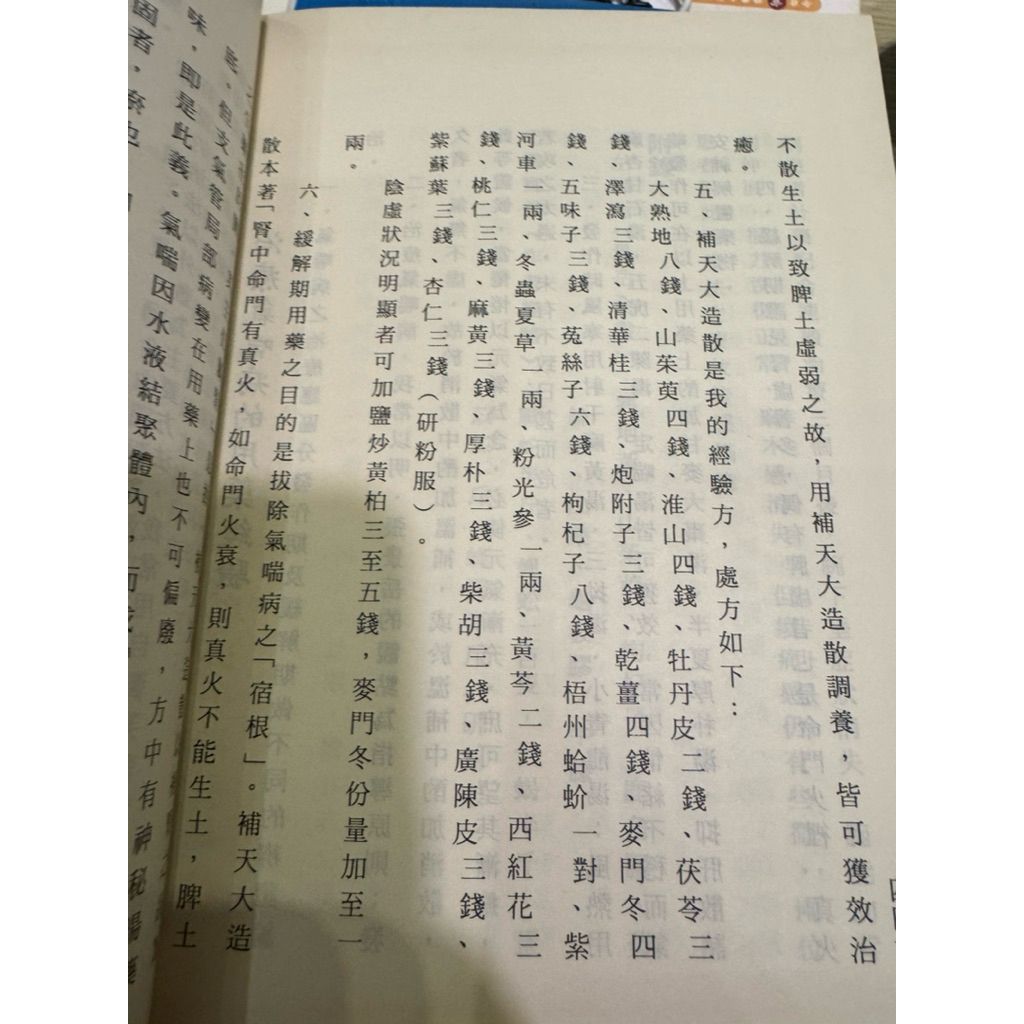 不散生土以致脾土虛弱之故，用補天大造散調養，皆可獲效治
癒。
五、補天大造散是我的經驗方，處方如下：
大熟地八錢、山茱萸四錢、淮山四錢、牡丹皮二錢、茯苓三
錢、澤瀉三錢、清華桂三錢、炮附子三錢、乾薑四錢、麥門冬四
錢、五味子三錢、菟絲子六錢、枸杞子八錢、梧州蛤蚧一對、紫
河車一兩、冬蟲夏草一兩、粉光參一兩、黃芩二錢、西紅花三
錢、桃仁三錢、麻黃三錢、厚朴三錢、柴胡三錢、廣陳皮三錢、
紫蘇葉三錢、杏仁三錢（研粉服）。
陰虛狀況明顯者可加鹽炒黃柏三至五錢，麥門冬份量加至一
兩。
六、緩解期用藥之目的是拔除氣喘病之「宿根」。補天大造
散本著「腎中命門有真火，如命門火衰，則真火不能生土，脾土
但支氣管局部病變在用藥上也不可偏廢，方中有神秘湯
味，即是此義。氣喘因水液結聚體內，而
固者，